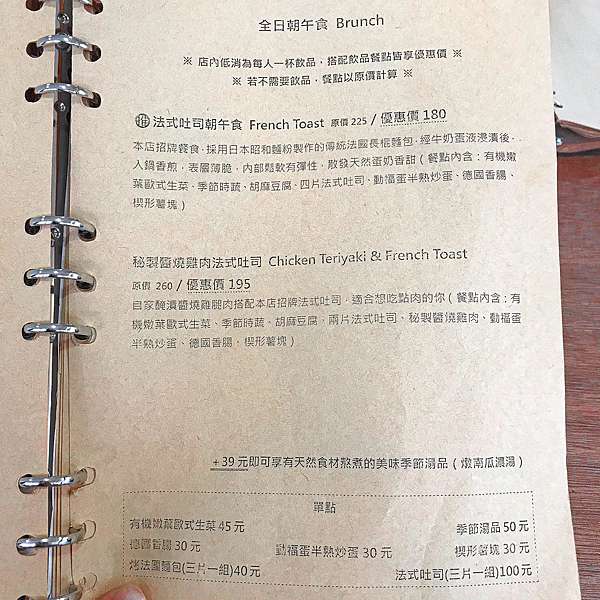 全日朝午食 Brunch
※ 店內低消為每人一杯飲品，搭配飲品餐點皆享優惠價 ※
※ 若不需要飲品，餐點以原價計算 ※
推 法式吐司朝午食 French Toast 原價 225 / 優惠價 180
本店招牌餐食，採用日本昭和麵粉製作的傳統法國長棍麵包，經牛奶蛋液浸漬後，
入鍋香煎，表層薄脆，內部鬆軟有彈性，散發天然蛋奶香甜（餐點內含：有機嫩
葉歐式生菜、季節時蔬、胡麻豆腐、四片法式吐司、動福蛋半熟炒蛋、德國香腸、
楔形薯塊）
秘製醬燒雞肉法式吐司 Chicken Teriyaki & French Toast
原價 260 / 優惠價 195
自家醃漬醬燒雞腿肉搭配本店招牌法式吐司，適合想吃點肉的你（餐點內含：有
機嫩葉歐式生菜、季節時蔬、胡麻豆腐，兩片法式吐司、秘製醬燒雞肉、動福蛋
半熟炒蛋、德國香腸，楔形薯塊）
+39元即可享有天然食材熬煮的美味季節湯品（燉南瓜濃湯）
單點
有機嫩葉歐式生菜 45 元 季節湯品 50 元
德國香腸 30 元 動福蛋半熟炒蛋 30 元 楔形薯塊 30 元
烤法國麵包(三片一組)40元 法式吐司(三片一組)100元